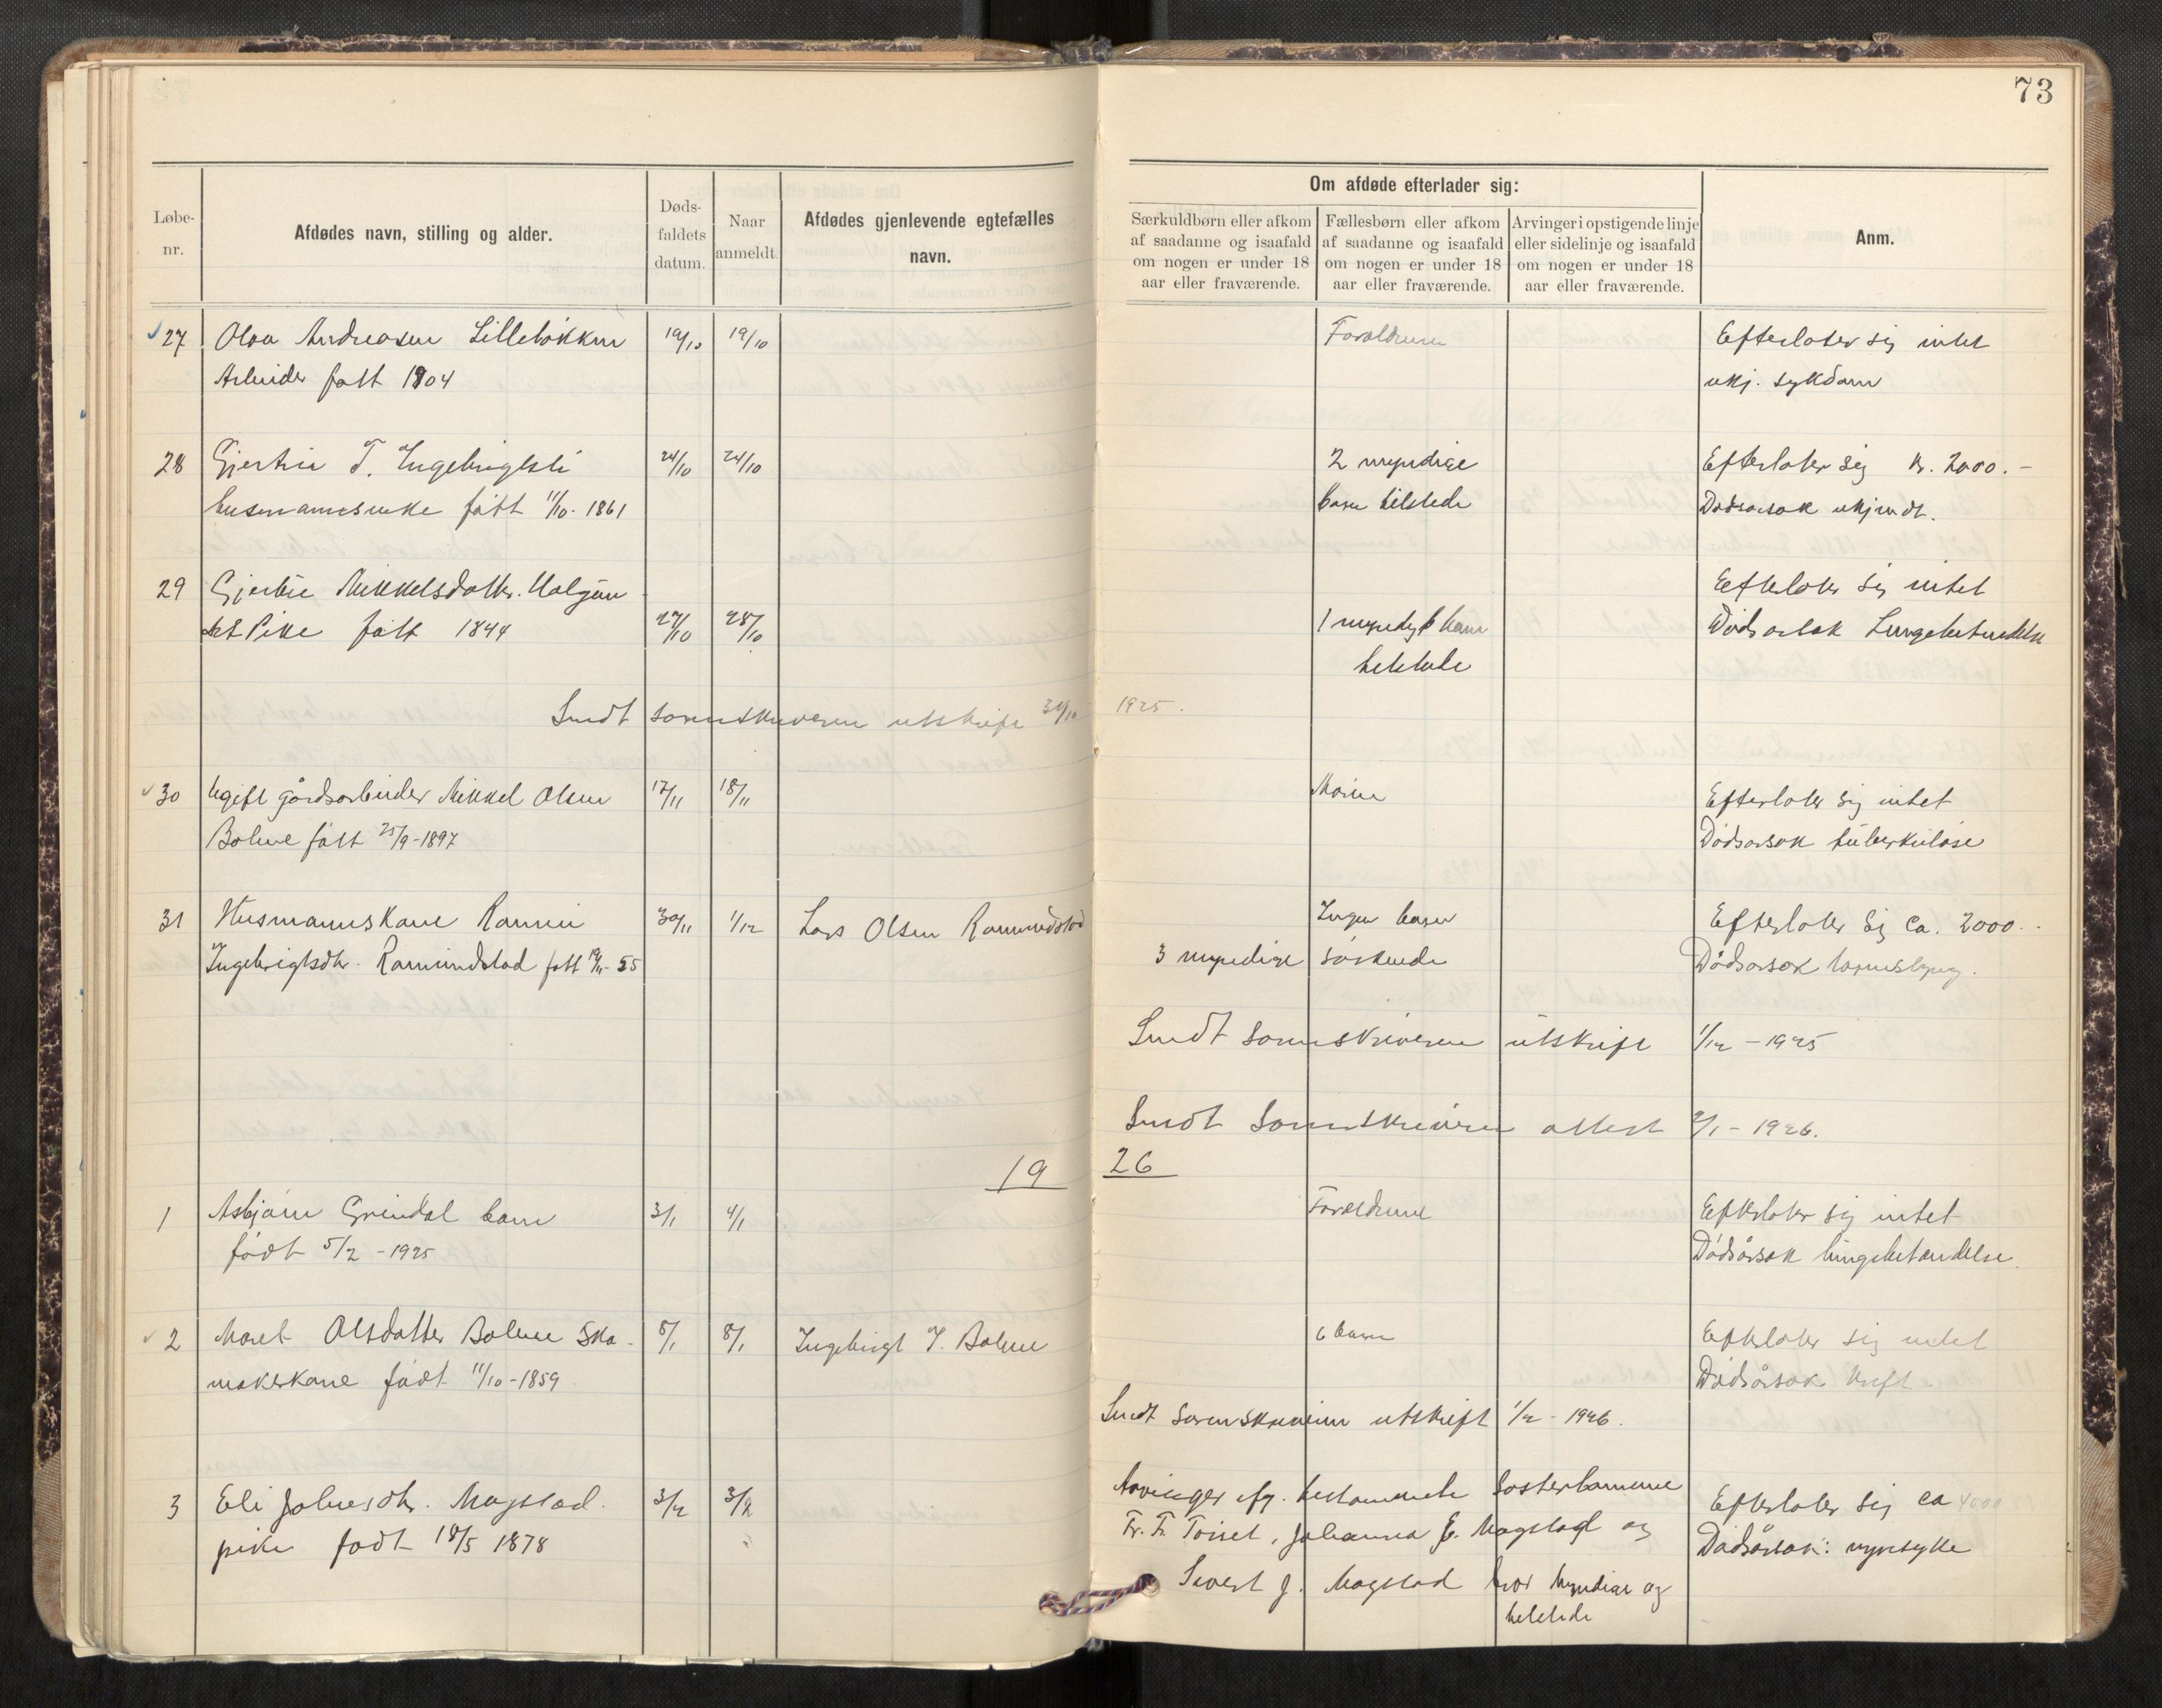 73
Løbe-
nr.
Afdødes navn, stilling og alder.
Døds-
faldets
datum.
Naar
anmeldt.
Afdødes gjenlevende egtefælles
navn.
Om afdøde efterlader sig:
Særkuldbørn eller afkom
af saadanne og isaafald
om nogen er under 18
aar eller fraværende.
Fællesbørn eller afkom
af saadanne og isaafald
om nogen er under 18
aar eller fraværende.
Arvinger i opstigende linje
eller sidelinje og isaafald
om nogen er under 18
aar eller fraværende.
Anm.
27 Olav Andreasen 19/10 19/10 Foreldrene Efterlater sig intet
Arbeider født 1904 ukj. sykdom
28 T. Ingebrigtsli 24/10 24/10 2 myndige Efterlater sig kr. 2000.-
født 11/10. 1861 barn tilstede Dødsorsak ukjendt.
29 Mikkelsdatter Efterlater sig intet
Pike født 1844 27/10 28/10 1 myndig barn Dødsorsak Lungebetændelse
tilstede
Sendt sorenskriveren utskrift 31/10 1925.
30 Ugift gårdsarbeider Mikkel Olsen 17/11 18/11 Moren Efterlater sig intet
Bolme født 25/9-1897 Dødsorsak tuberkulose
31 Husmannskone 30/11 1/12 Lars Olsen Ramundstad Ingen barn Efterlater sig ca. 2000.-
Ingebrigtsdtr. Ramundstad født 55 3 myndige søskende Dødsorsak
Sendt sorenskriveren utskrift 1/12 - 1925
Sendt Sorenskriveren attest 2/1 - 1926.
19 26
1 Asbjørn Grindal barn 3/1 4/1 Foreldrene Efterlater sig intet
født 5/2 - 1925 Dødsårsak lungebetændelse.
2 Marit Olsdatter Bolme Sko- 8/1 8/1 Ingebrigt J. Bolme 6 barn Efterlater sig intet
makerkone født 11/10-1859 Dødsårsak kreft.
Sendt Sorenskriveren utskrift 1/2 - 1926.
3 Eli Johnsdtr. Magstad. 3/2 3/2 Arvinger testamente Søsterbarnene Efterlater sig ca 4000
pike født 18/5 1878 Johanna Magstad og Dødsårsak: nyresyke
Sivert J. Magstad myndige og
tilstede